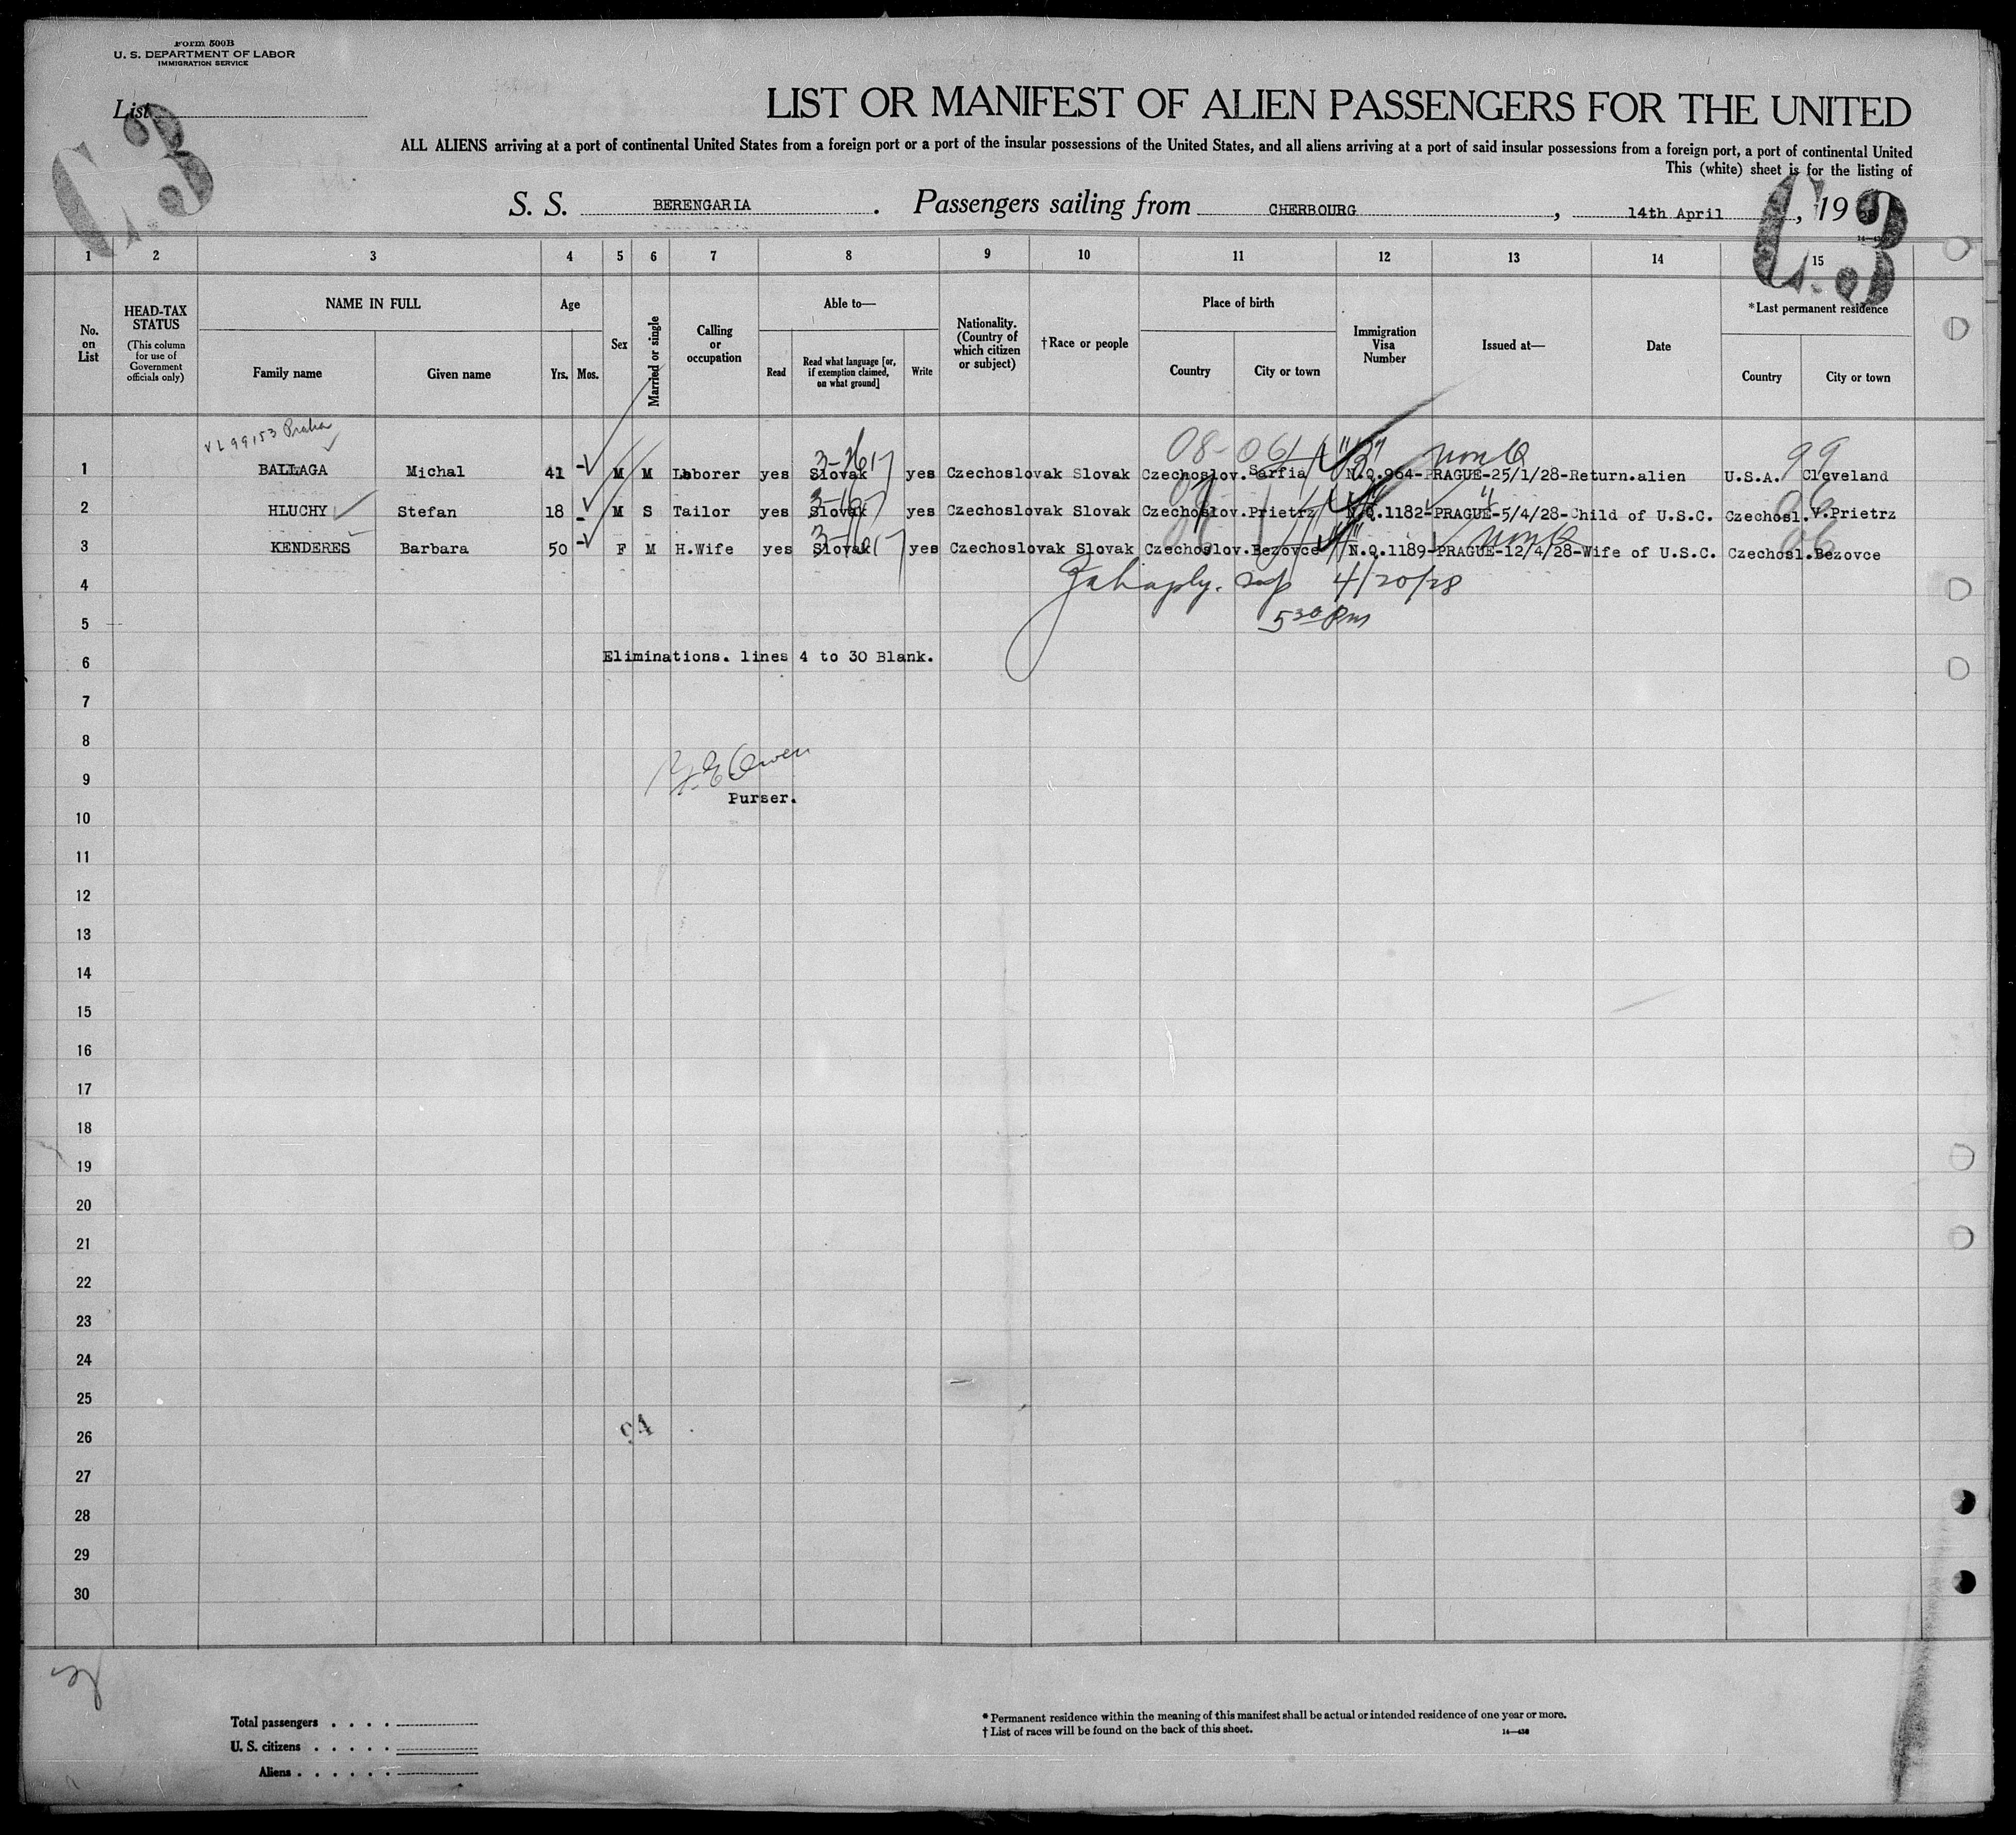 Form 500B
U. S. DEPARTMENT OF LABOR
IMMIGRATION SERVICE
List
C3
LIST OR MANIFEST OF ALIEN PASSENGERS FOR THE UNITED
ALL ALIENS arriving at a port of continental United States from a foreign port or a port of the insular possessions of the United States, and all aliens arriving at a port of said insular possessions from a foreign port, a port of continental United
This (white) sheet is for the listing of
S. S. BERENGARIA . Passengers sailing from CHERBOURG , 14th April , 19
C.3
1 2 3 4 5 6 7 8 9 10 11 12 13 14 15
No. on List
HEAD-TAX STATUS
(This column for use of Government officials only)
NAME IN FULL
Family name Given name
Age
Yrs. Mos.
Sex
Married or single
Calling or occupation
Able to—
Read
Read what language [or, if exemption claimed, on what ground]
Write
Nationality. (Country of which citizen or subject)
†Race or people
Place of birth
Country City or town
Immigration Visa Number
Issued at—
Date
*Last permanent residence
Country City or town
VL99153 Praha
08-06 99
1 BALLAGA Michal 41 - M M Laborer yes Slovak yes Czechoslovak Slovak Czechoslov. Sarfia N.Q.964-PRAGUE-25/1/28-Return.alien U.S.A. Cleveland
2 HLUCHY Stefan 18 - M S Tailor yes Slovak yes Czechoslovak Slovak Czechoslov.Prietrz N.Q.1182-PRAGUE-5/4/28-Child of U.S.C. Czechosl.V.Prietrz
3 KENDERES Barbara 50 - F M H.Wife yes Slovak yes Czechoslovak Slovak Czechoslov.Bezovce N.Q.1189-PRAGUE-12/4/28-Wife of U.S.C. Czechosl.Bezovce
4 4/20/28
5 5 30 Pm
6 Eliminations. lines 4 to 30 Blank.
7
8
9 Owen
Purser.
10
11
12
13
14
15
16
17
18
19
20
21
22
23
24
25
26 94
27
28
29
30
Total passengers . . . .
U. S. citizens . . . . .
Aliens . . . . . .
* Permanent residence within the meaning of this manifest shall be actual or intended residence of one year or more.
† List of races will be found on the back of this sheet. 14—438